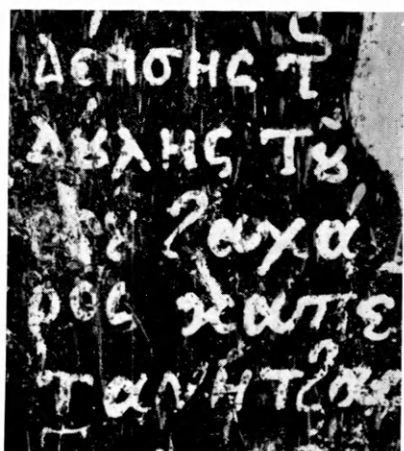 Δέησης τ͂
δȣλης τȣ͂
Ζαχά
ρος καπε
τανήτζας